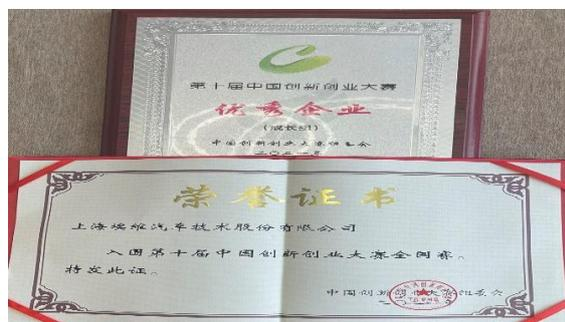 第十届中国创新创业大赛
优秀企业
(成长组)
中国创新创业大赛组委会
荣誉证书
上海埃维汽车技术股份有限公司
入围第十届中国创新创业大赛全国赛。
特发此证。
中国创新创业大赛组委会